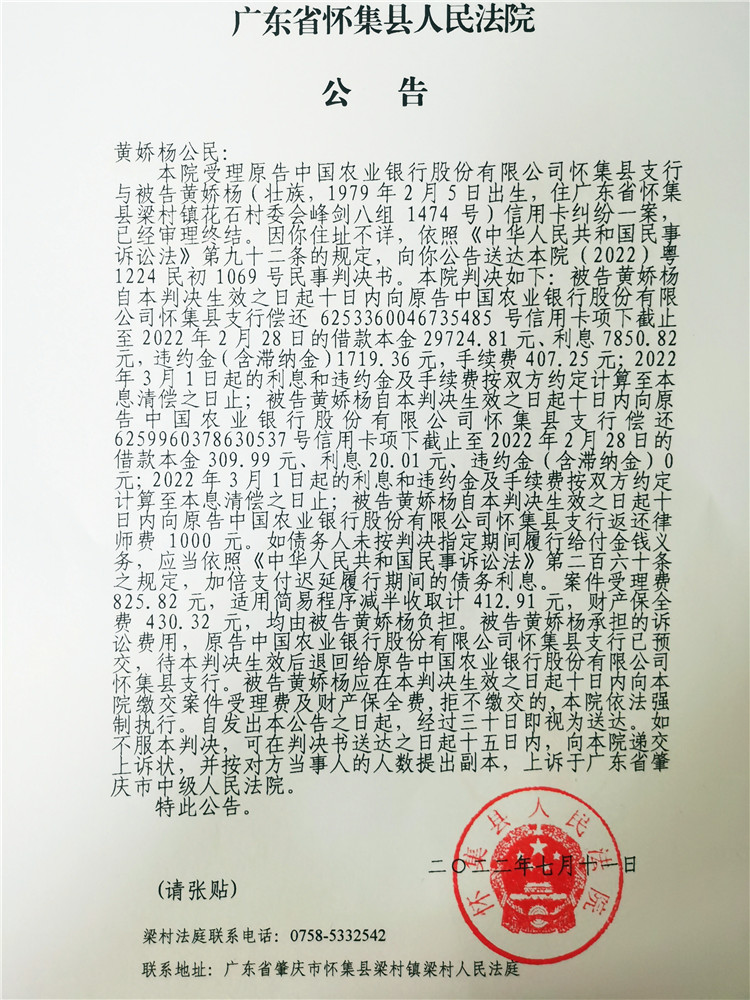 广东省怀集县人民法院
公 告
黄娇杨公民：
本院受理原告中国农业银行股份有限公司怀集县支行
与被告黄娇杨（壮族，1979年2月5日出生，住广东省怀集
县梁村镇花石村委会峰剑八组 1474 号）信用卡纠纷一案，
已经审理终结。因你住址不详，依照《中华人民共和国民事
诉讼法》第九十二条的规定，向你公告送达本院（2022）粤
1224 民初 1069 号民事判决书。本院判决如下：被告黄娇杨
自本判决生效之日起十日内向原告中国农业银行股份有限
公司怀集县支行偿还 6253360046735485 号信用卡项下截止
至 2022 年 2 月 28 日的借款本金 29724.81 元、利息 7850.82
元，违约金(含滞纳金)1719.36 元，手续费 407.25 元；2022
年 3 月 1 日起的利息和违约金及手续费按双方约定计算至本
息清偿之日止；被告黄娇杨自本判决生效之日起十日内向原
告中国农业银行股份有限公司怀集县支行偿还
6259960378630537 号信用卡项下截止至 2022 年 2 月 28 日的
借款本金 309.99 元、利息 20.01 元、违约金（含滞纳金）0
元；2022 年 3 月 1 日起的利息和违约金及手续费按双方约定
计算至本息清偿之日止；被告黄娇杨自本判决生效之日起十
日内向原告中国农业银行股份有限公司怀集县支行返还律
师费 1000 元。如债务人未按判决指定期间履行给付金钱义
务，应当依照《中华人民共和国民事诉讼法》第二百六十条
之规定，加倍支付迟延履行期间的债务利息。案件受理费
825.82 元，适用简易程序减半收取计 412.91 元，财产保全
费 430.32 元，均由被告黄娇杨负担。被告黄娇杨承担的诉
讼费用，原告中国农业银行股份有限公司怀集县支行已预
交，待本判决生效后退回给原告中国农业银行股份有限公司
怀集县支行。被告黄娇杨应在本判决生效之日起十日内向本
院缴交案件受理费及财产保全费,拒不缴交的,本院依法强
制执行。自发出本公告之日起，经过三十日即视为送达。如
不服本判决，可在判决书送达之日起十五日内，向本院递交
上诉状，并按对方当事人的人数提出副本，上诉于广东省肇
庆市中级人民法院。
特此公告。
怀集县人民法院
二〇二二年七月十一日
(请张贴)
梁村法庭联系电话：0758-5332542
联系地址：广东省肇庆市怀集县梁村镇梁村人民法庭